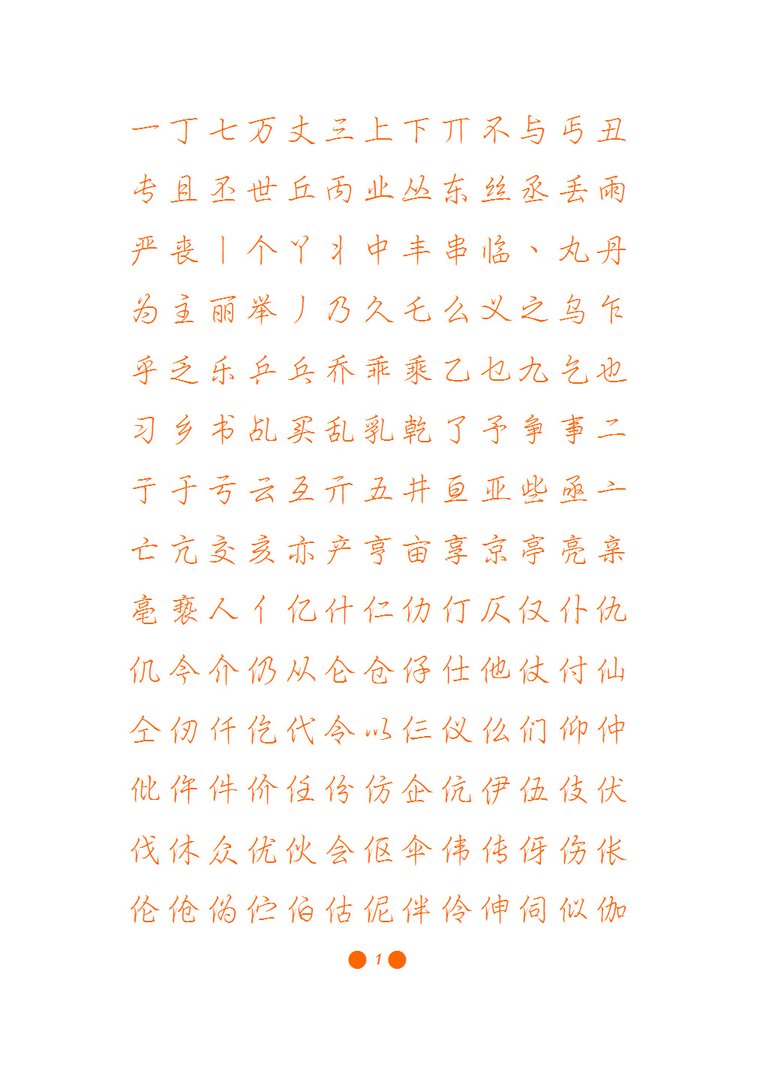 一丁七万丈三上下丌不与丐丑
专且丕世丘丙业丛东丝丞丢雨
严丧丨个丫丬中丰串临丶丸丹
为主丽举丿乃久乇么义之乌乍
乎乏乐乒乓乔乖乘乙乜九乞也
习乡书乩买乱乳乾了予争事二
亍于亏云互亓五井亘亚些亟亠
亡亢交亥亦产亨亩享京亭亮亲
亳亵人亻亿什仁仂仃仄仅仆仇
仉今介仍从仑仓仔仕他仗付仙
仝仞仟仡代令以仨仪仫们仰仲
仳仵件价任份仿企伉伊伍伎伏
伐休众优伙会伛伞伟传伢伤伥
伦伧伪伫伯估伲伴伶伸伺似伽
1